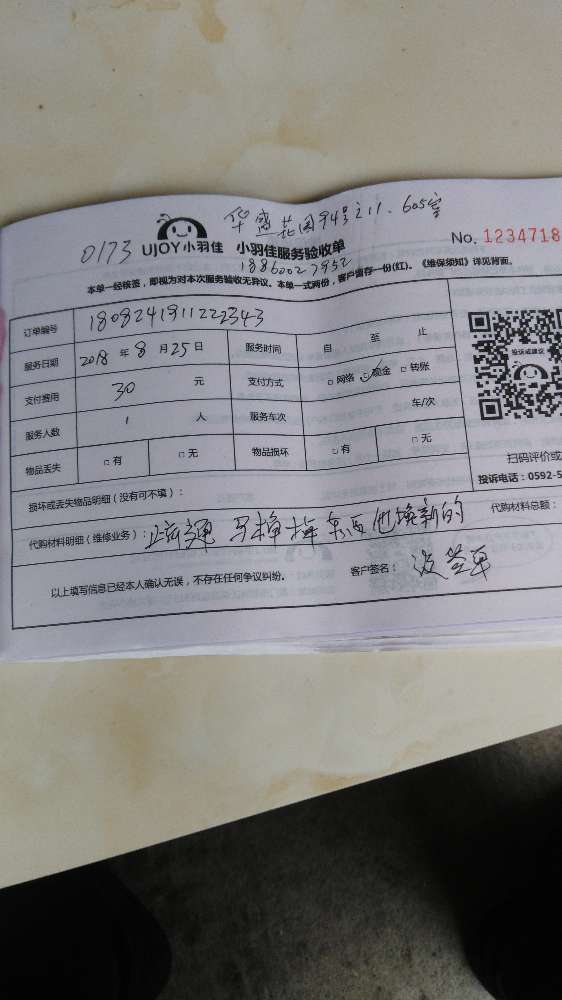 华盛花园94号之11.605室
0173 UJOY小羽佳 小羽佳服务验收单 No. 1234718
18860027952
本单一经核签，即视为对本次服务验收无异议。本单一式两份，客户留存一份(红)。《维保须知》详见背面。
订单编号 1808241911222343
服务日期 2018 年 8 月 25 日 服务时间 自 至 止
支付费用 30 元 支付方式 □网络 □现金 □转账
投诉或建议
服务人数 1 人 服务车次 车/次
物品丢失 □有 □无 物品损坏 □有 □无
扫码评价或
投诉电话：0592-5
损坏或丢失物品明细（没有可不填）：
代购材料明细（维修业务）： 换新的 代购材料总额：
以上填写信息已经本人确认无误，不存在任何争议纠纷。 客户签名： 没签单